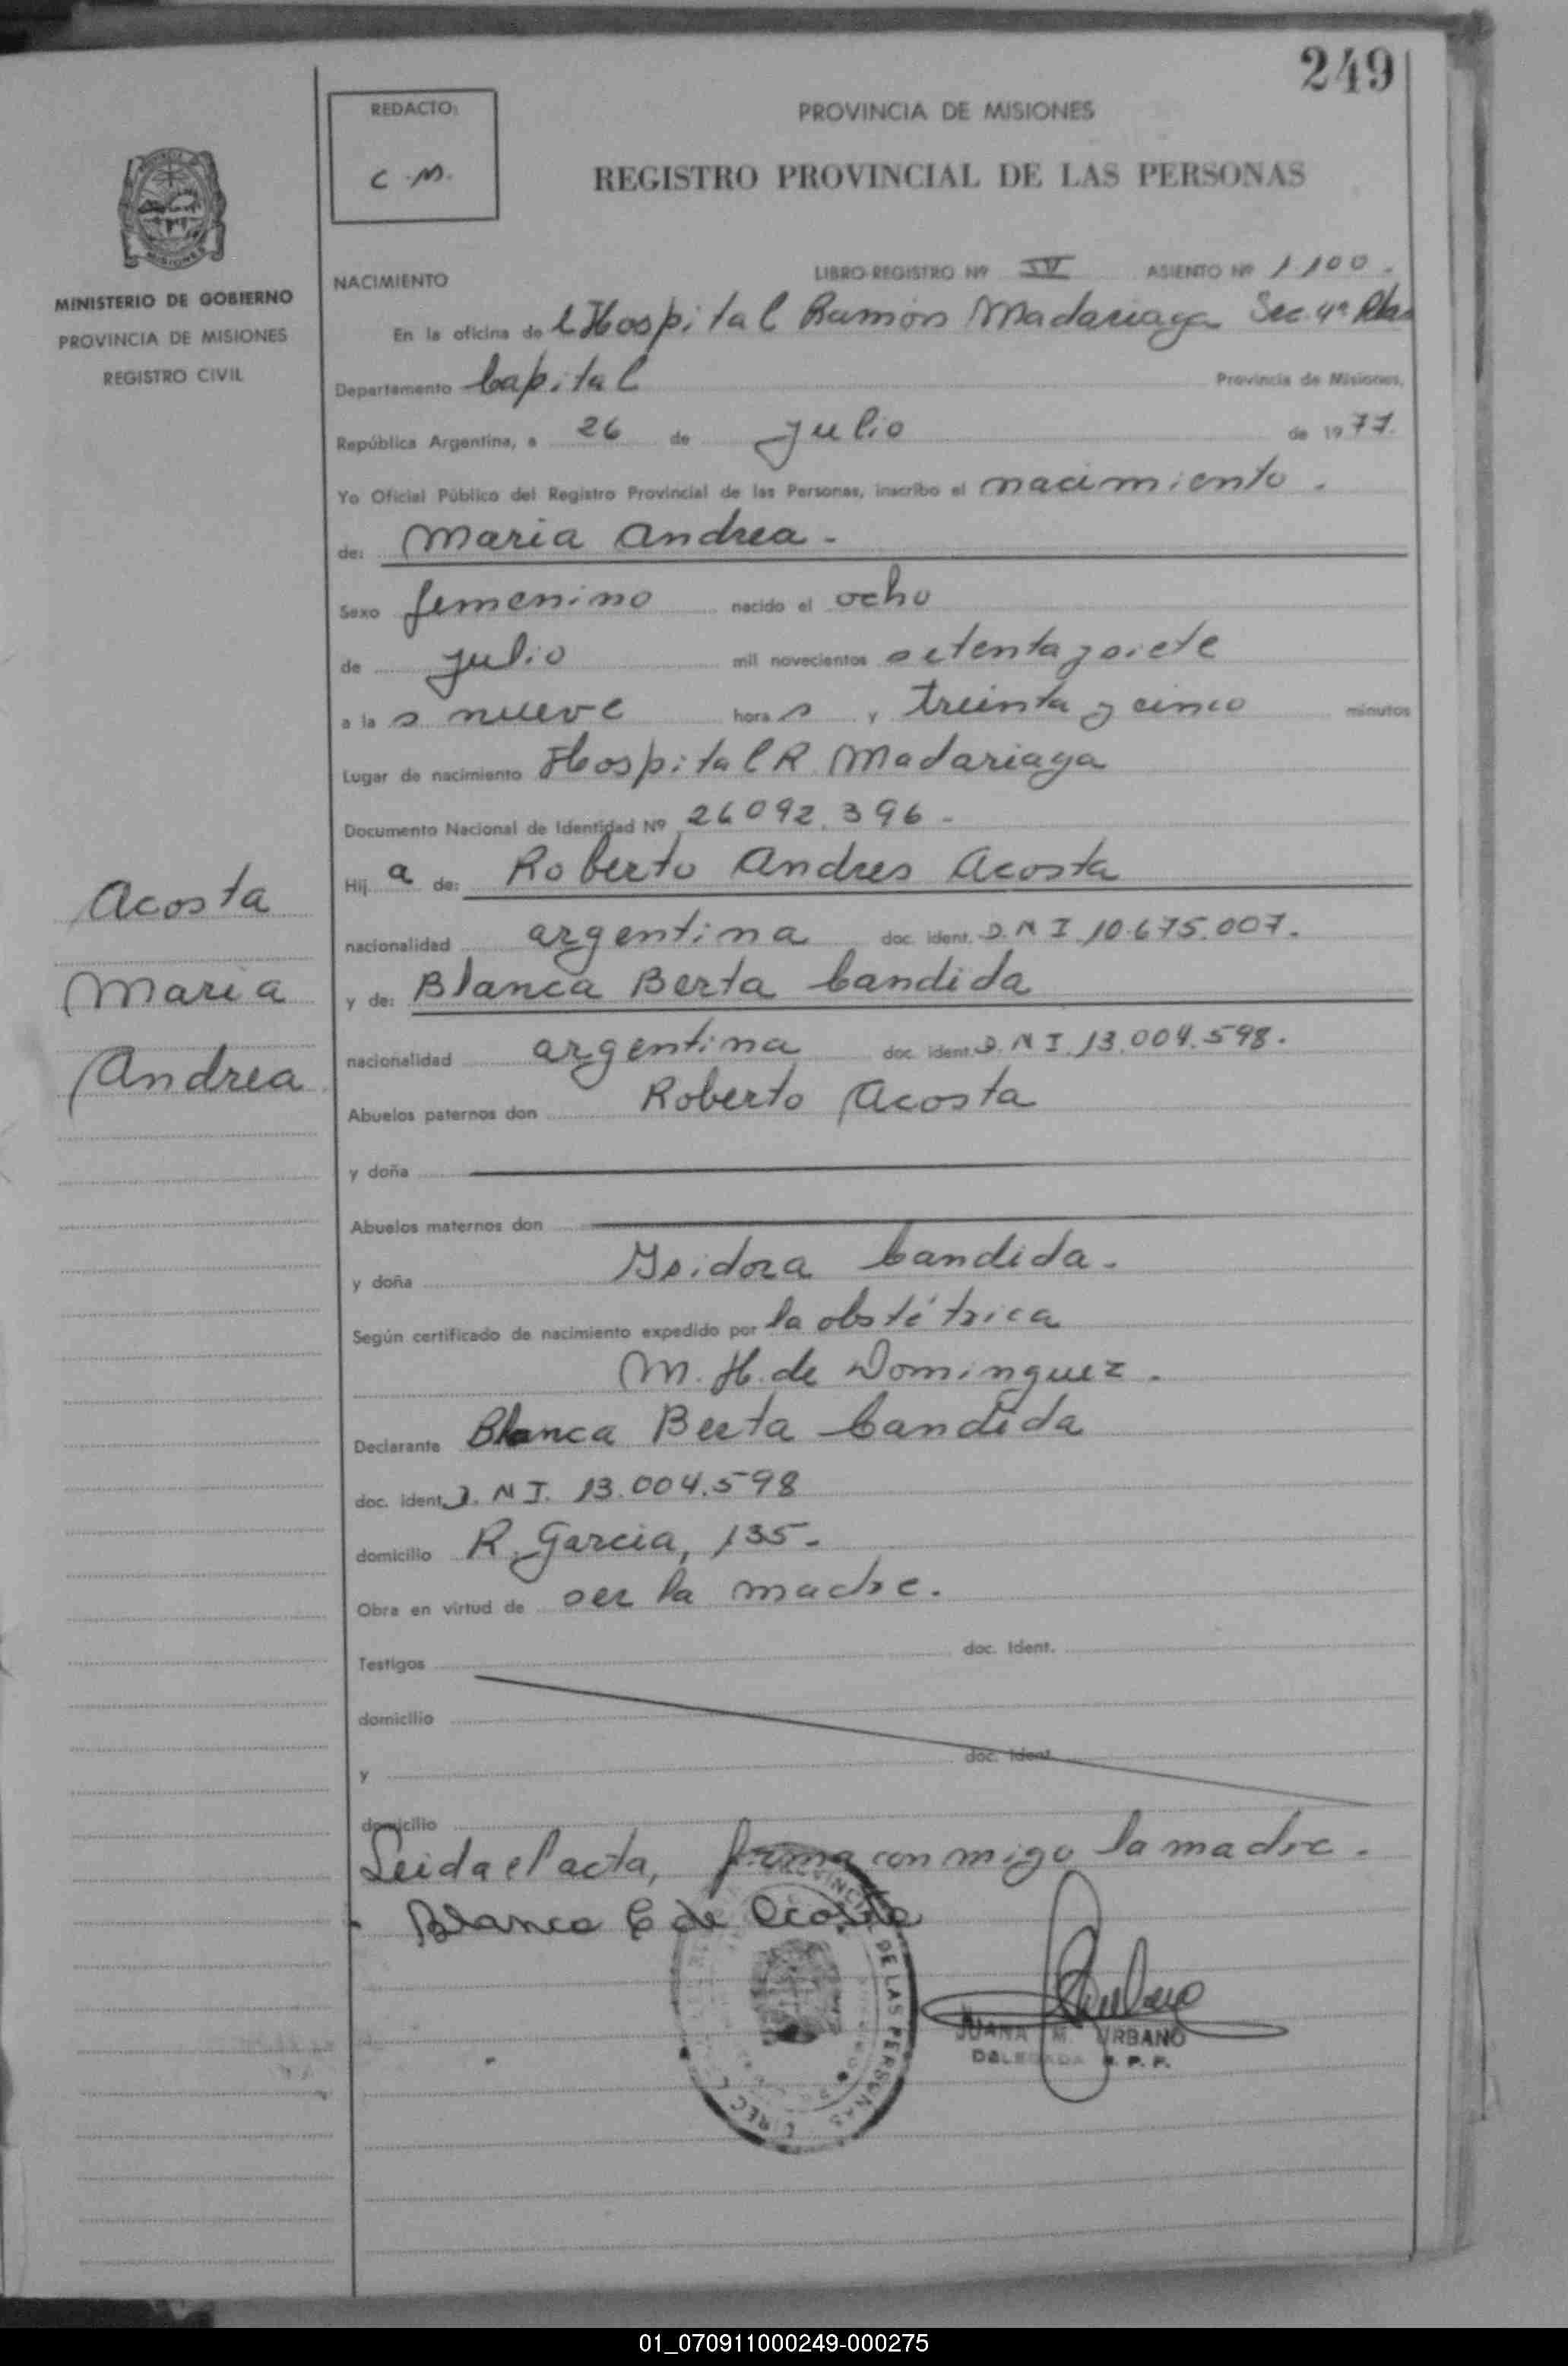 249
REDACTO:
C. M.
PROVINCIA DE MISIONES
REGISTRO PROVINCIAL DE LAS PERSONAS
MISIONES
MINISTERIO DE GOBIERNO
PROVINCIA DE MISIONES
REGISTRO CIVIL
NACIMIENTO LIBRO-REGISTRO Nº IV ASIENTO Nº 1.100.
En la oficina del Hospital Ramón Madariaga Sec. 4ª
Departamento Capital Provincia de Misiones,
República Argentina, a 26 de Julio de 1977.
Yo Oficial Público del Registro Provincial de las Personas, inscribo el nacimiento.
de: Maria Andrea.
Sexo femenino nacido el ocho
de Julio mil novecientos setenta y siete
a las nueve horas y treinta y cinco minutos
Lugar de nacimiento Hospital R. Madariaga
Documento Nacional de Identidad Nº 26092.396.
Hija de: Roberto Andres Acosta
nacionalidad argentina doc. ident. D.N I. 10.675.007.
y de: Blanca Berta Candida
nacionalidad argentina doc. ident. D. N I. 13.004.598.
Abuelos paternos don Roberto Acosta
y doña
Abuelos maternos don
y doña Isidora Candida.
Según certificado de nacimiento expedido por la obstétrica
M. H. de Dominguez.
Declarante Blanca Berta Candida
doc. ident. D. N I. 13.004.598
domicilio R. Garcia, 135.
Obra en virtud de ser la madre.
Testigos doc. Ident.
domicilio
y doc. Ident.
domicilio
Leida el acta, firma conmigo la madre.
Blanca C de Acosta
Acosta
Maria
Andrea
DE LAS PERSONAS
JUANA M. URBANO
DELEGADA R. P. P.
01_070911000249-000275